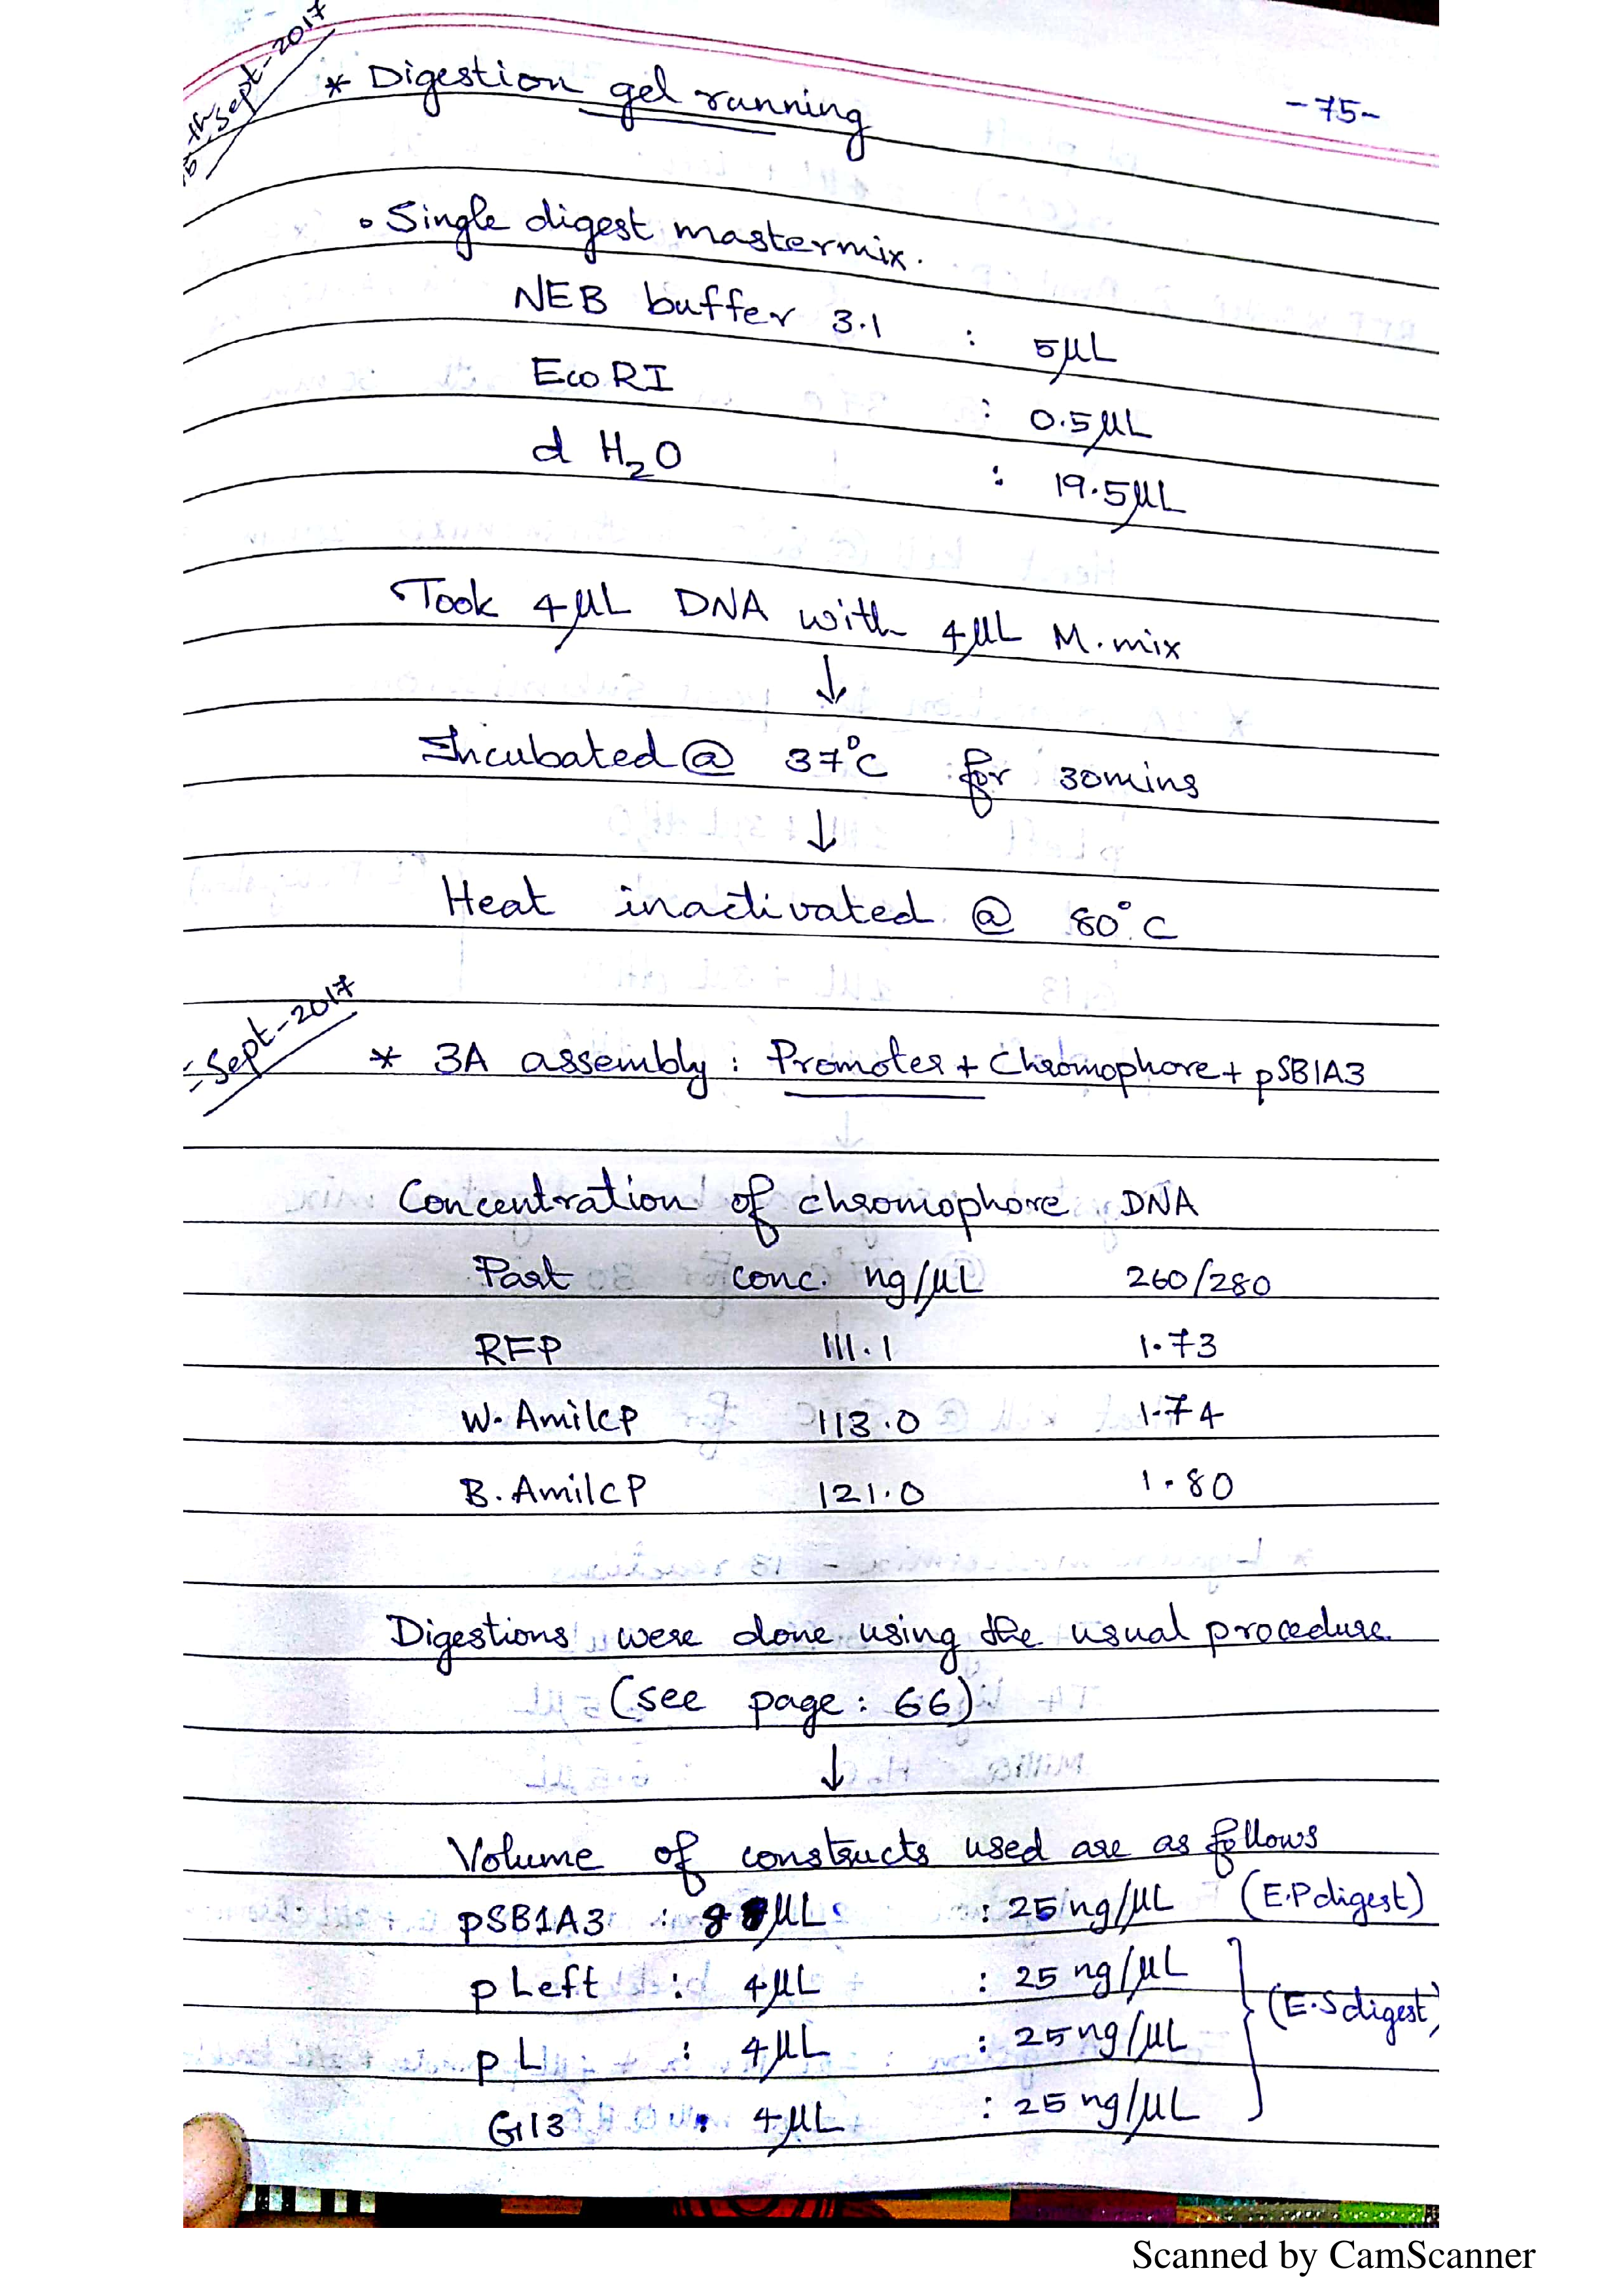 th Sept-2017
* Digestion gel running
-75-
• Single digest mastermix.
NEB buffer 3.1 : 5µL
EcoRI : 0.5µL
d H₂O : 19.5µL
Took 4µL DNA with 4µL M.mix
↓
Incubated @ 37°C for 30mins
↓
Heat inactivated @ 80°C
-Sept-2017
* 3A assembly : Promoter + Chromophore + pSB1A3
Concentration of chromophore DNA
Part conc. ng/µL 260/280
RFP 111.1 1.73
W. AmilCP 113.0 1.74
B. AmilCP 121.0 1.80
Digestions were done using the usual procedure.
(see page: 66)
↓
Volume of constructs used are as follows
pSB1A3 : 8 µL : 25 ng/µL (E.P digest)
pLeft : 4µL : 25 ng/µL
(E.S digest)
pL : 4µL : 25 ng/µL
G13 : 4µL : 25 ng/µL
Scanned by CamScanner